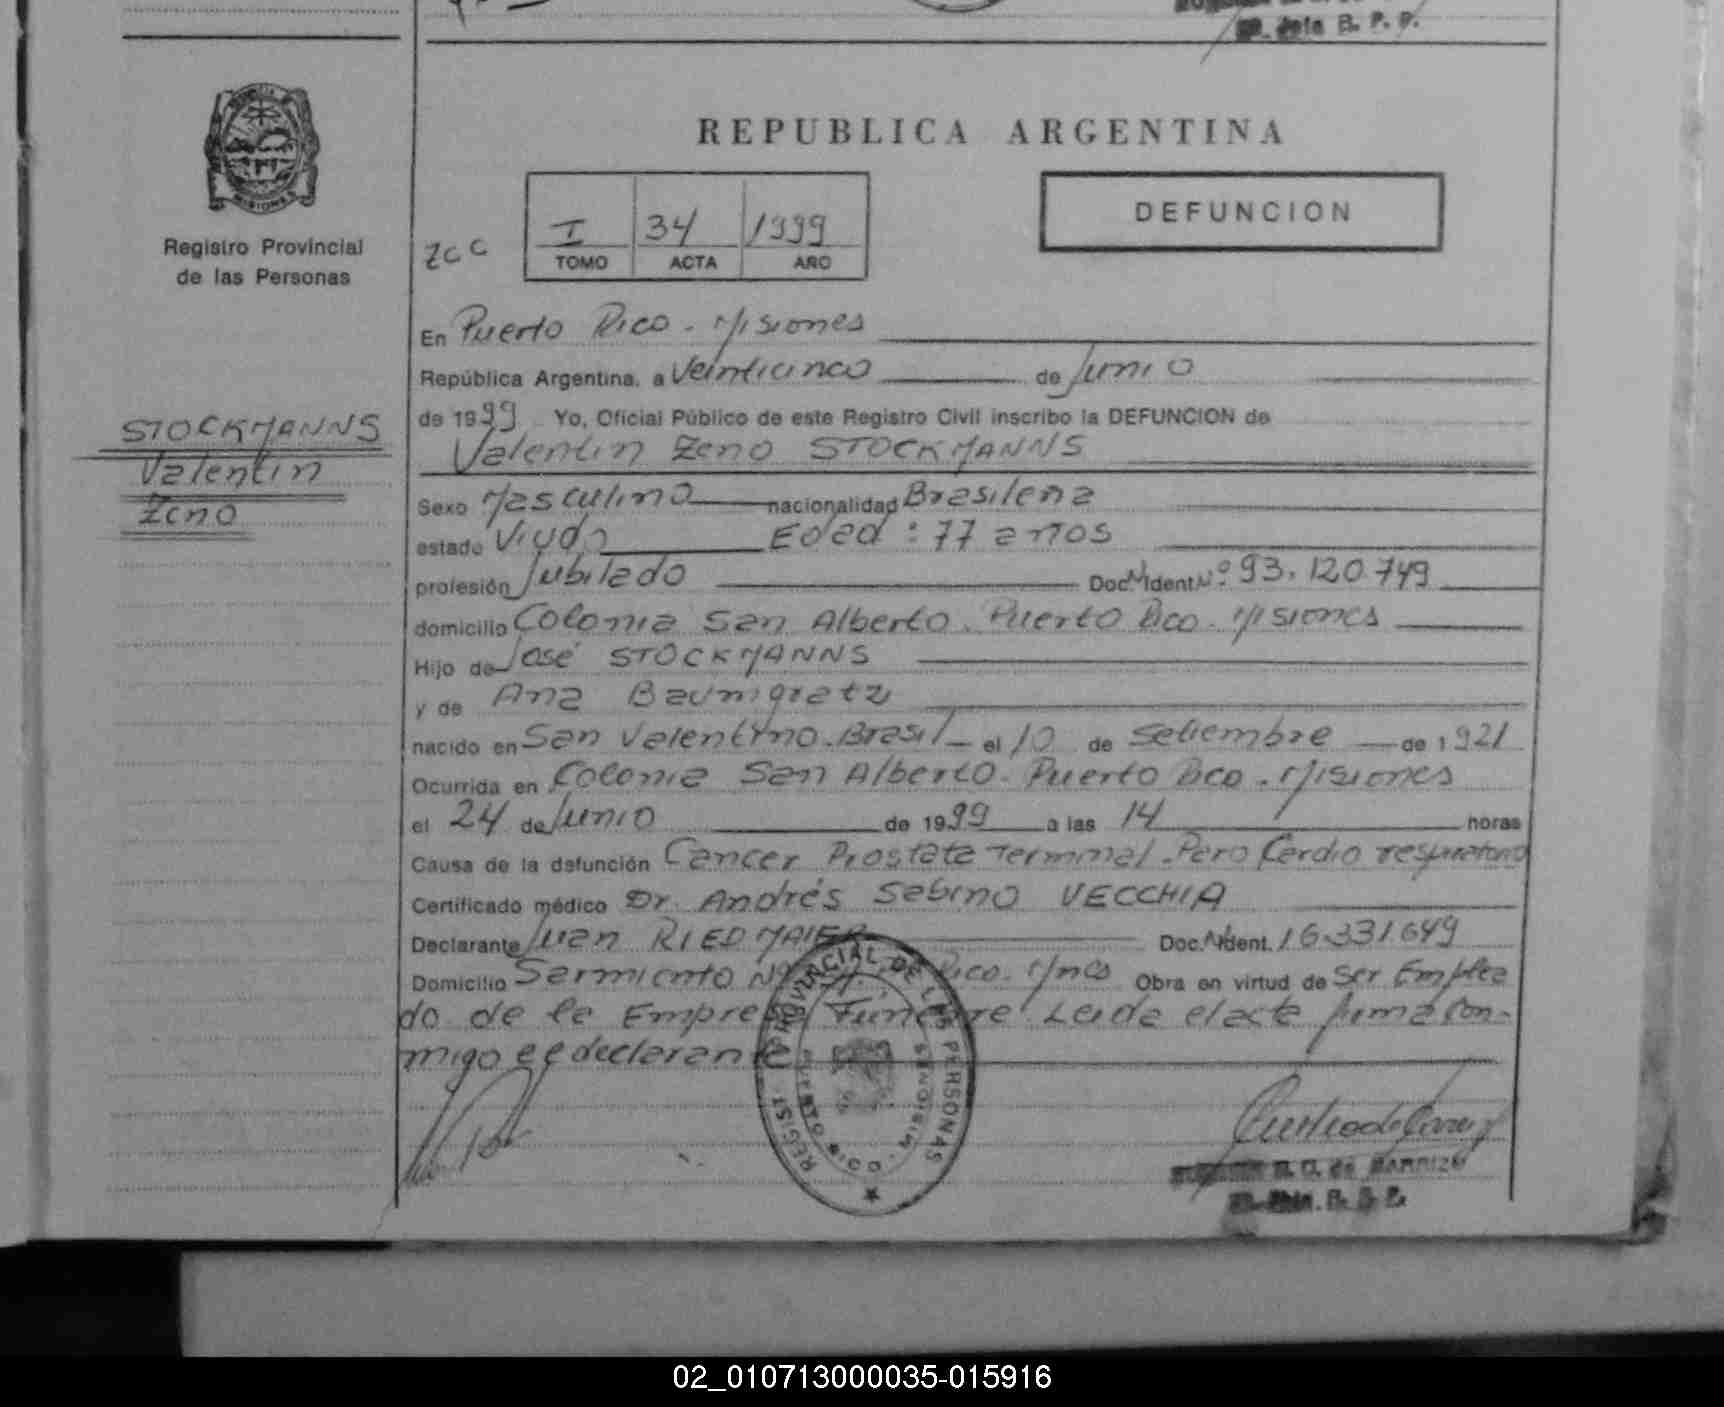 Jefe R. P. P.
PROVINCIA
MISIONES
Registro Provincial
de las Personas
STOCKMANNS
Valentin
Zeno
REPUBLICA ARGENTINA
DEFUNCION
I 34 1999
TOMO ACTA AÑO
En Puerto Rico - Misiones
República Argentina, a Veinticinco de Junio
de 1999 Yo, Oficial Público de este Registro Civil inscribo la DEFUNCION de
Valentin Zeno STOCKMANNS
Sexo Masculino nacionalidad Brasileña
estado Viudo Edad: 77 años
profesión Jubilado Doc. N. Ident. Nº 93.120.749
domicilio Colonia San Alberto. Puerto Rico. Misiones
Hijo de José STOCKMANNS
y de Ana Baumgratz
nacido en San Valentino. Brasil el 10 de Setiembre de 1921
Ocurrida en Colonia San Alberto. Puerto Rico. Misiones
el 24 de Junio de 1999 a las 14 horas
Causa de la defunción Cancer Prostata Terminal. Paro Cardio respiratorio
Certificado médico Dr. Andrés Sabino VECCHIA
Declarante Juan RIEDMAIER Doc. N. Ident. 16.331.649
Domicilio Sarmiento Nº Rico. Mnes Obra en virtud de Ser Emplea
do de la Empresa Funebre. Leida el acta firma con-
migo el declarante
REGISTRO PROVINCIAL DE LAS PERSONAS
PUERTO RICO - MISIONES
02_010713000035-015916